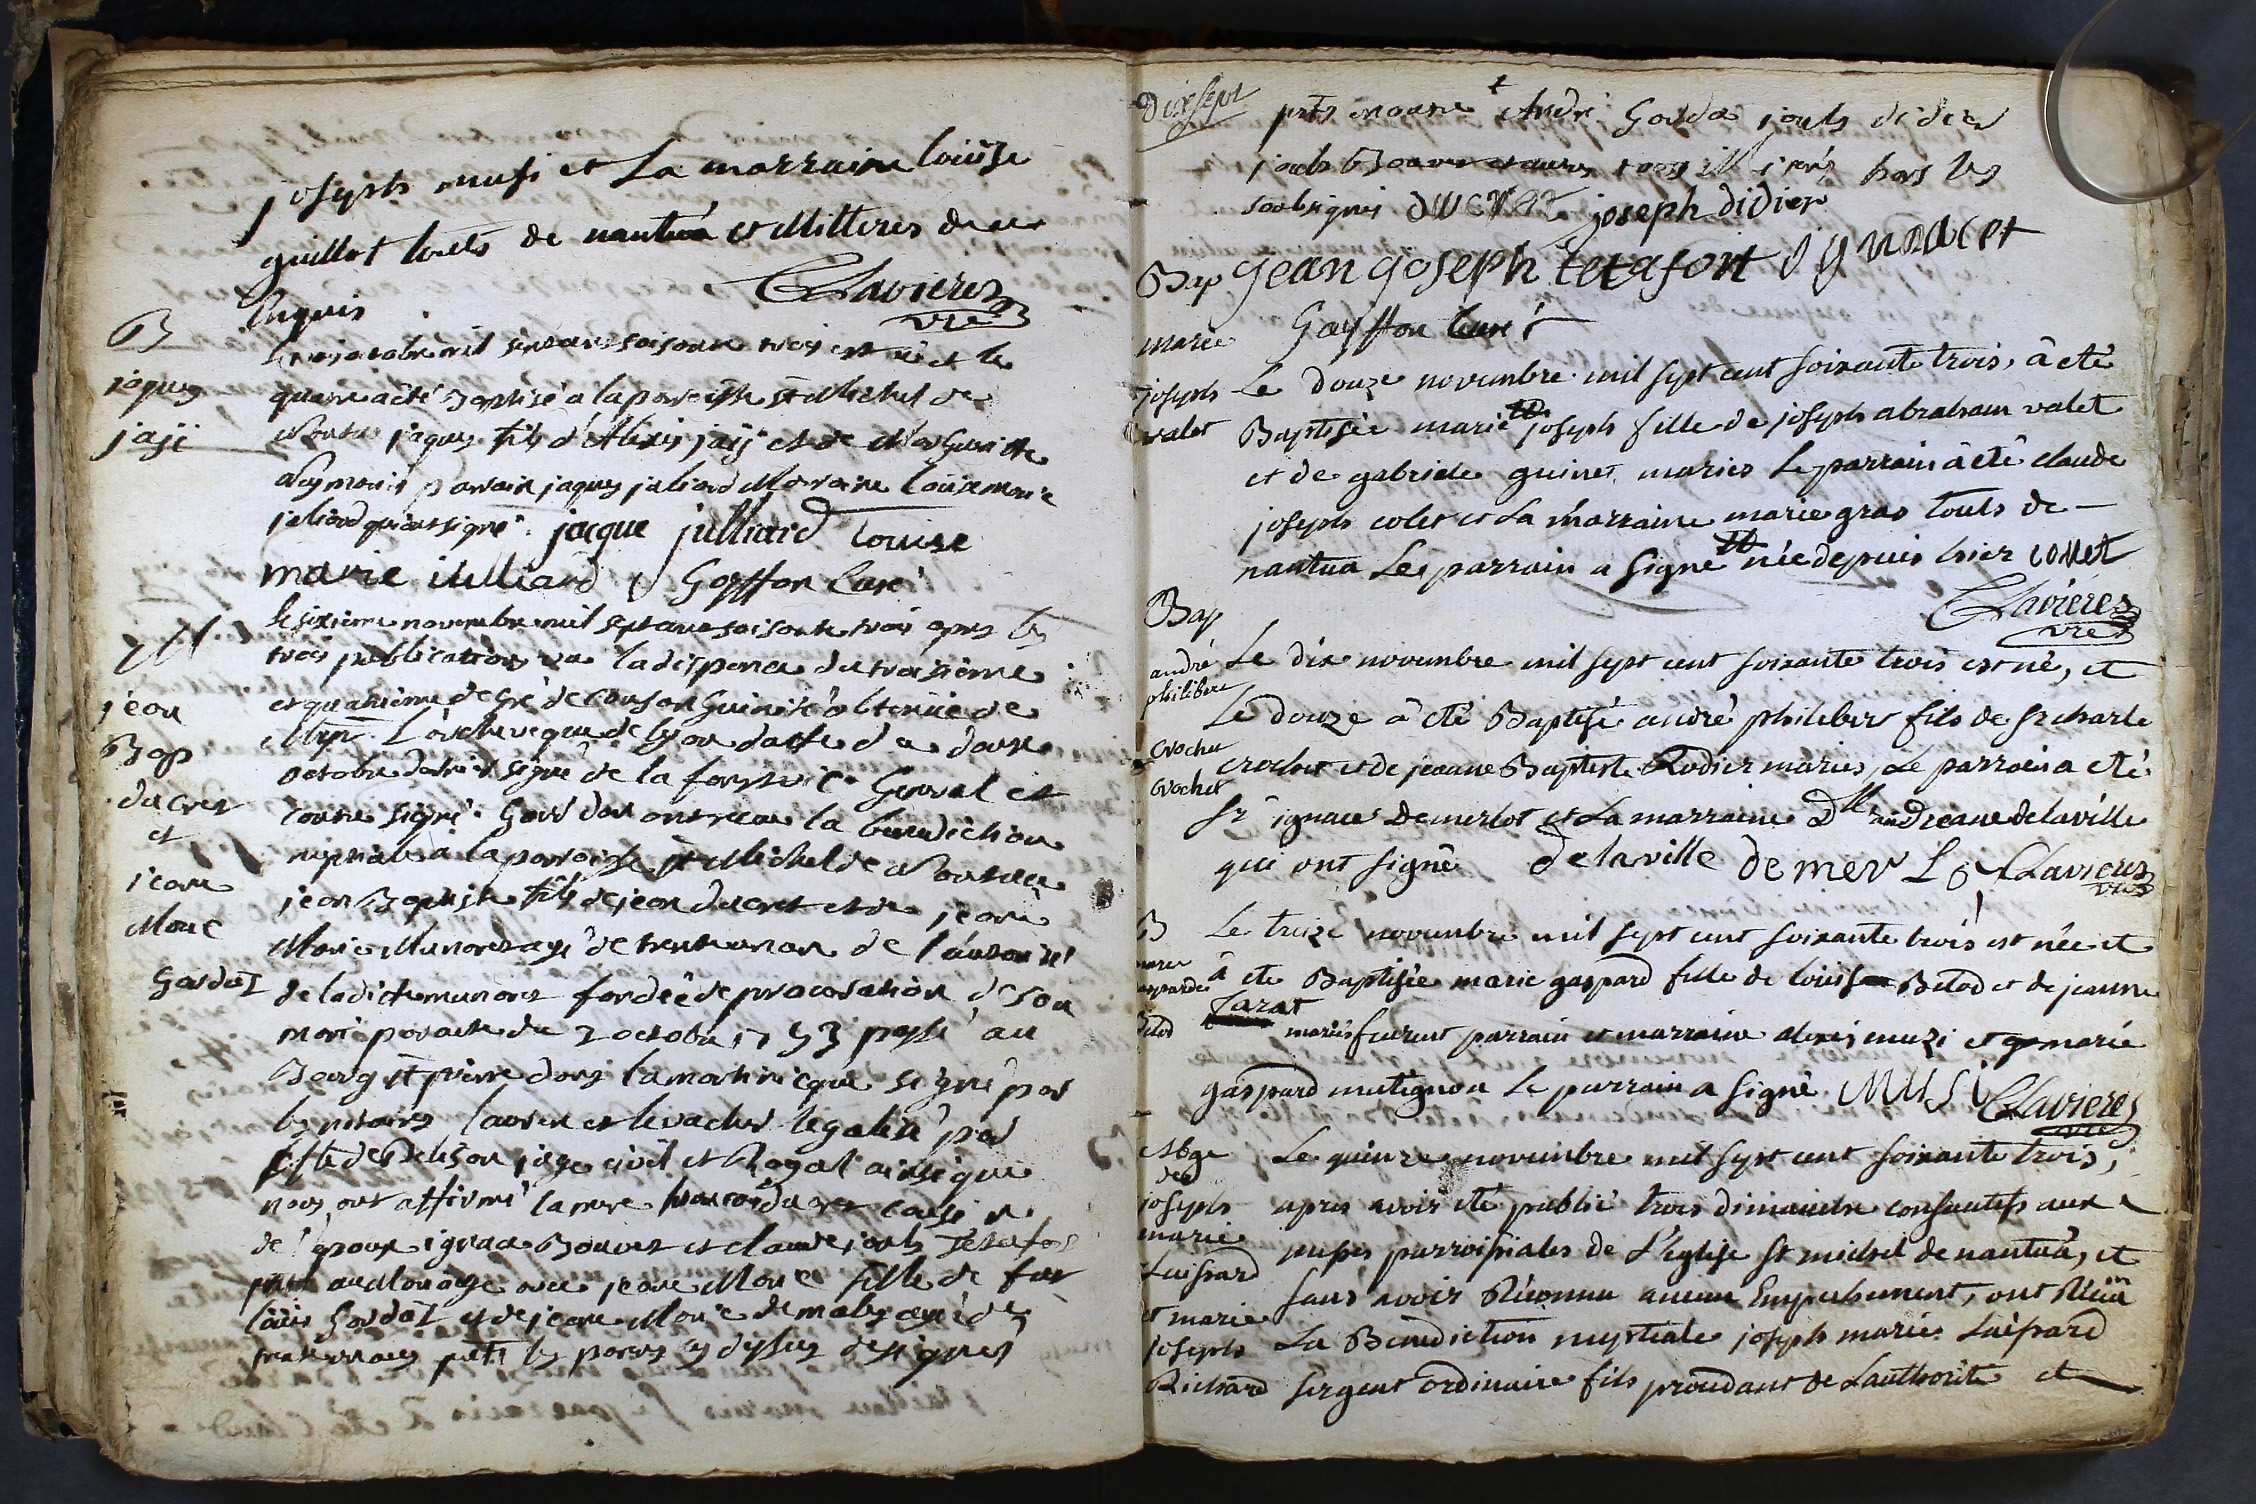 joseph musi et La marraine louïse
guillot touts de nantua et Millieres de ce
Requis
Clavieres
vre
B
jaques
jaÿi
Le trois octobre mil sept cent soisante trois est né et le
quatre a été Baptisé a la paroisse st Michel de
Nantua jaques fils d'Alexis jaÿi et de Marguerite
parrain jaques juliard Marraine Louise marie
juliard qui ont signé. jacque julliard Louise
marie iulliard Gayffon Curé
M
jean
Bap
ducret
et
jeane
Marie
Gordat
le sixieme novembre mil sept cent soisante trois apres les
trois publications vu la dispence du troisieme
et quatrieme degré de consanguinité obtenüe de
Mgr L'archeveque de Lyon datté du douze
octobre dernier signé de la forest vic. General et
contre signé. Gourdon ont recue la benediction
nuptiale a la paroisse st Michel de Nantua
jean Baptiste fils de jean ducret et de jeane
Marie Munoret agé de trente un an de l'autorité
de ladicte munoret fondée de procuration de son
mari par acte du 2 octobre 1753 passé au
Bourg st pierre dans la martinicque signé par
les notaires Lauren et levacher legalisé par
juge civil et Royal ainsi que
nous ont affirmé la mere ducret cousin
de l'epoux ignace Bouvet et claude joseph Tetafort
au Mariage avec jeane Marie fille de feu
Loüis Gordat et de jeane Marie demaby agée de
trente un ans prts les parens cy dessus designés
Dix sept
prts encore † André Gordat jouls didier
jouls Bouver et autres tous illiterés hors les
soubsignés ducret joseph didier
jean joseph tetafort ignace
Gayffon Curé
Bap
marie
joseph
valet
Le douze novembre mil sept cent soixante trois, â eté
Baptisée marie joseph fille de joseph abraham valet
et de gabriele guinet mariés Le parrain â eté claude
joseph colet et La marraine marie gras touts de –
nantua Le parrain a signé née depuis hier collet
Clavieres
vre
Bap
andré
philibert
crochet
crochet
Le dix novembre mil sept cent soixante trois est né, et
Le douze â eté Baptisé andré philebert fils de sr charle
crochet et de jeanne Baptiste Rodier mariés, Le parrain a eté
Sr ignace Demerlot et La marraine Dlle andreane delaville
qui ont signé delaville demerLo Clavieres
vre
B
marie
gasparde
Belod
Le treize novembre mil sept cent soixante trois est née et
â eté Baptisée marie gaspard fille de loüis Belod et de jeanne
Zarat
mariés furent parrain et marraine alexis muzi et marie
gaspard matignon Le parrain a signé MUSI Clavieres
vre
Mge
de
joseph
marie
Luipard
et marie
joseph
Richard
Le quinze novembre mil sept cent soixante trois,
apres avoir eté publié trois dimanche consecutifs aux
messes parroissiales de L'eglise st michel de nantua, et
sans avoir Reconnu aucun Empechement, ont Reçu
La Benediction nuptiale joseph marie Luipard
sergent ordinaire fils procedant de Lauthorité et